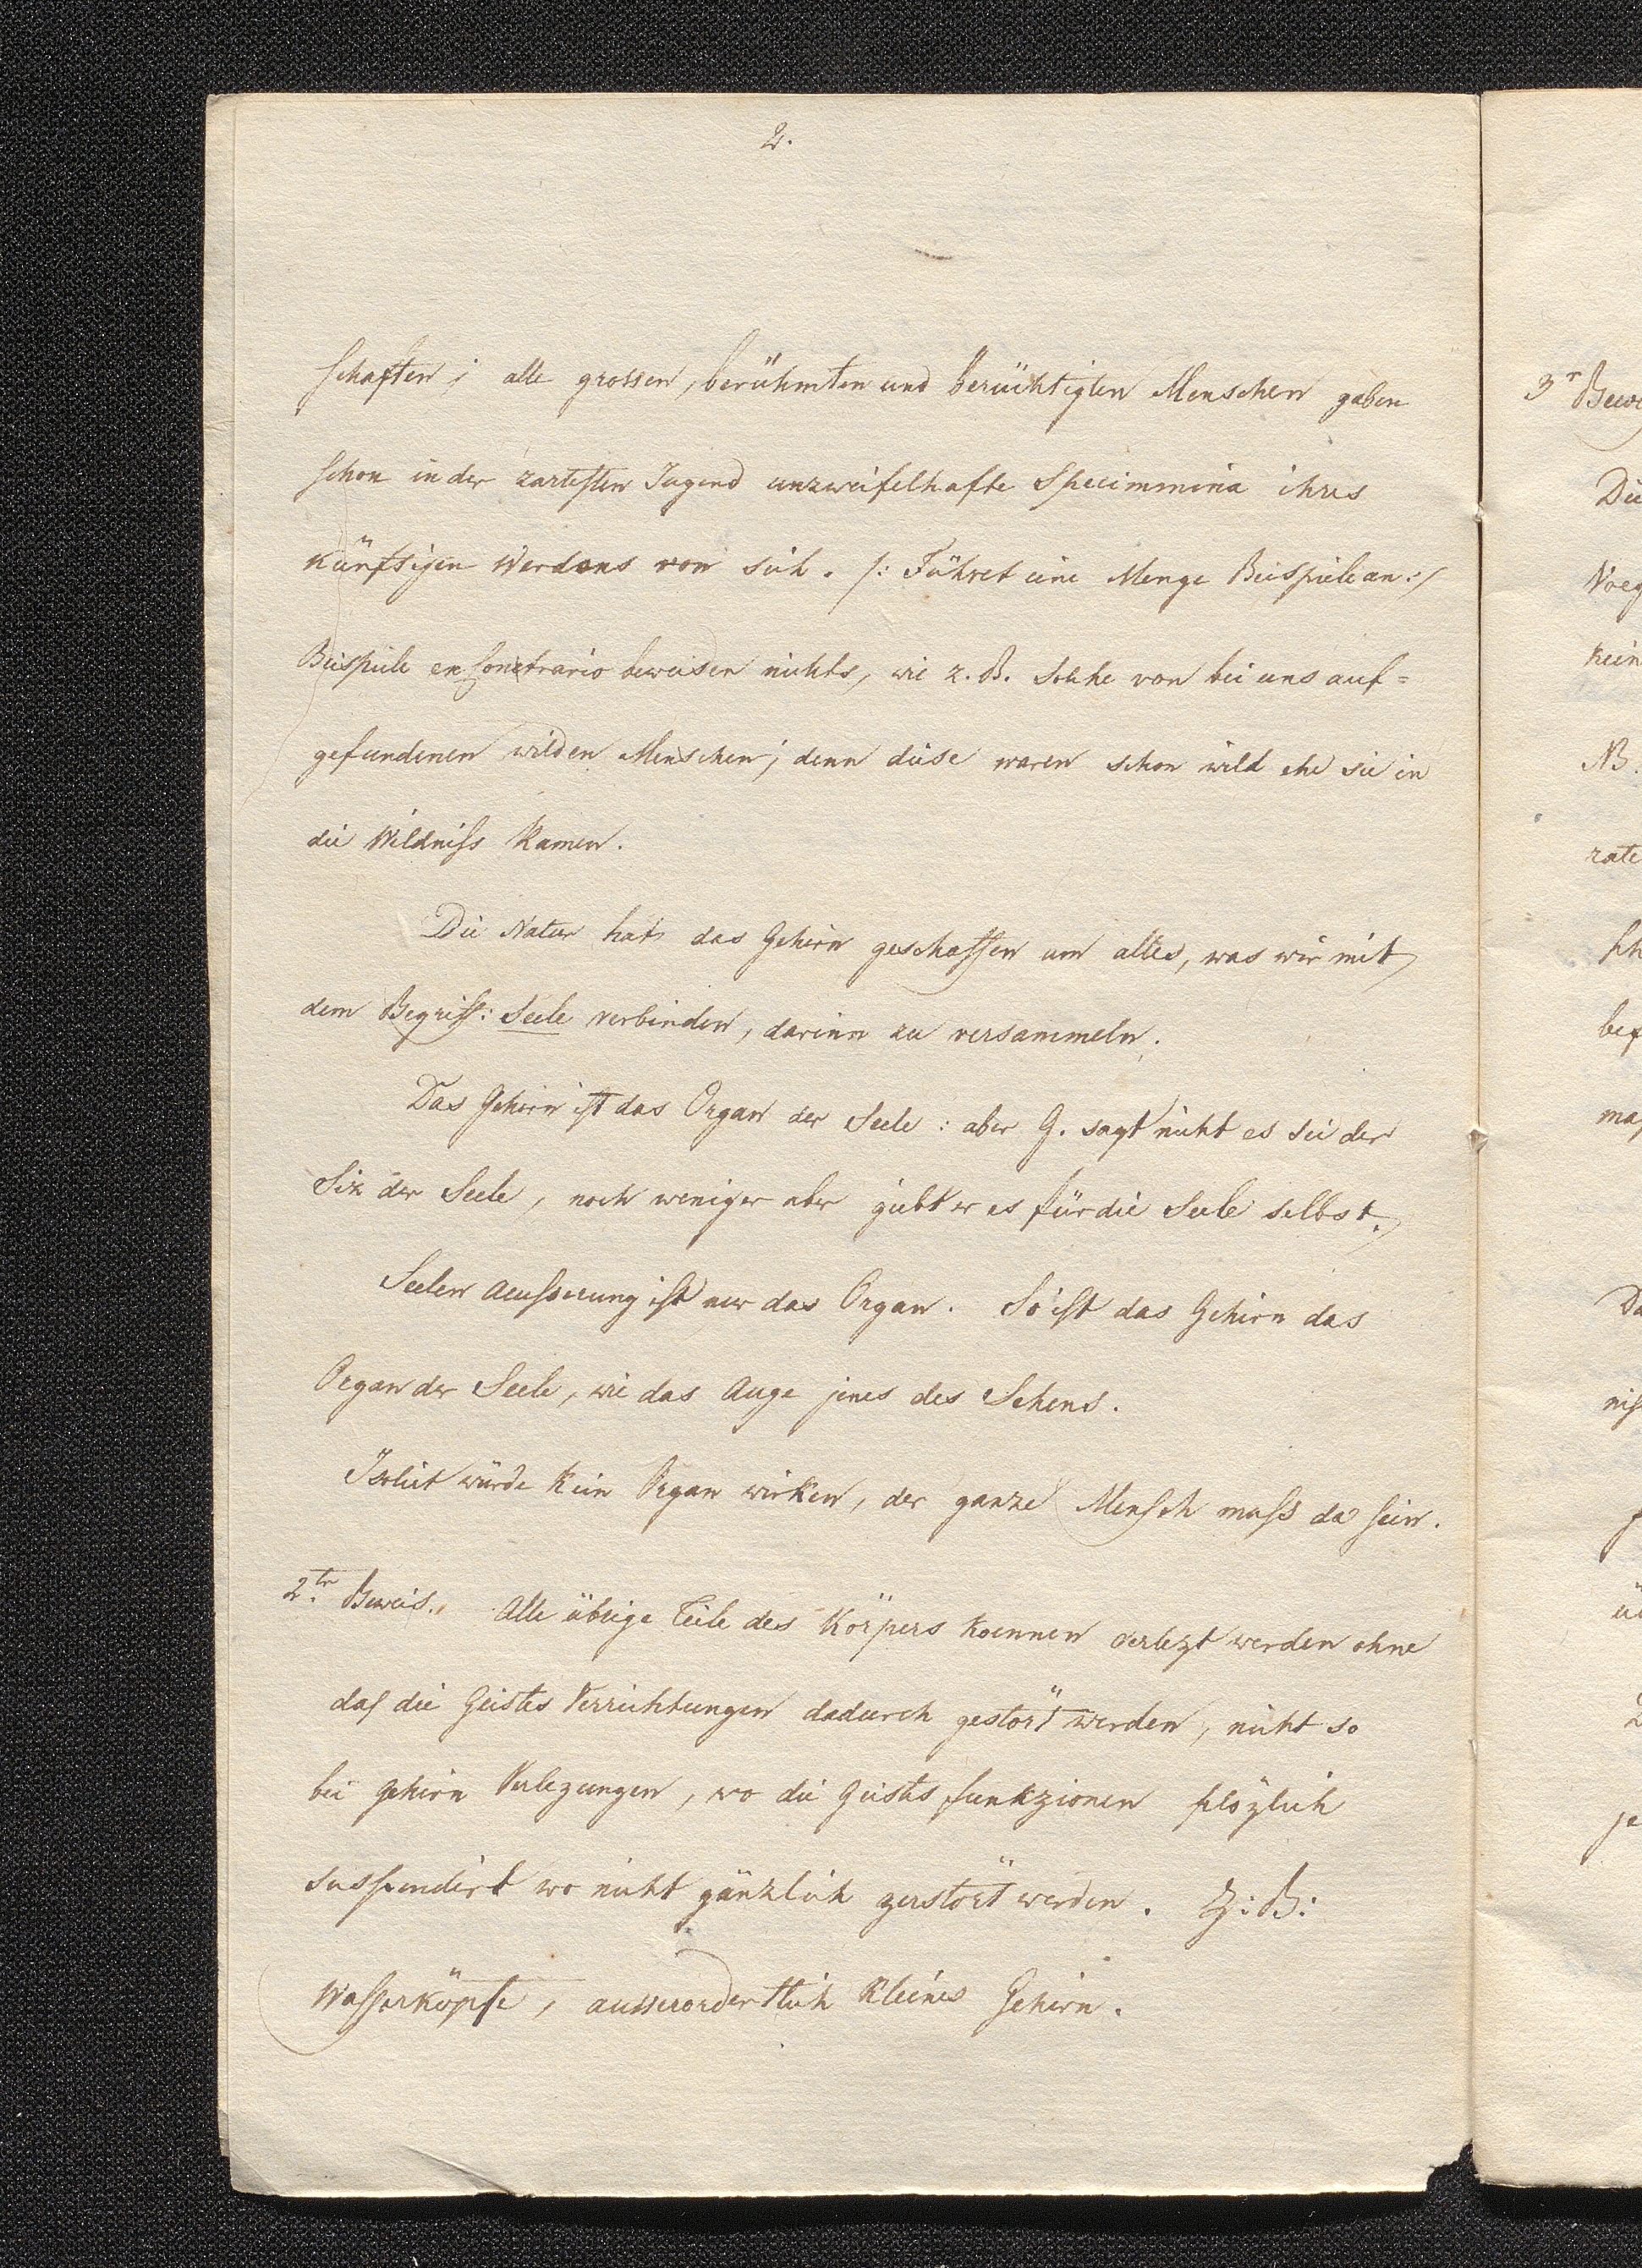 2.
schaften; alle grossen, berühmten und berüchtigten Menschen gaben
schon in der zartesten Jugend unzweifelhafte Specimmina ihres
künftigen Werdens von sich. /: Führet eine Menge Beispiele an :/
Beispiele en contrario beweisen nichts, wie z. B. solche von bei uns auf=
gefundenen wilden Menschen; denn diese waren schon wild ehe sie in
die Wildniss kamen.
Die Natur hat das Gehirn geschaffen um alles, was wir mit
dem Begriff: Seele verbinden, darinn zu versammeln.
Das Gehirn ist das Organ der Seele: aber G. sagt nicht es sei der
Siz der Seele, noch weniger aber giebt er es für die Seele selbst.
Seelen Aeusserung ist nur das Organ. So ist das Gehirn das
Organ der Seele, wie das Auge jenes des Sehens.
Isolirt würde kein Organ wirken, der ganze Mensch muss da sein.
2.tr Beweis. Alle übrige Teile des Körpers koennen verlezt werden ohne
das die Geistes Verrichtungen dadurch gestört werden, nicht so
bei Gehirn Verlezungen, wo die Geistes funkzionen plözlich
suspendirt wo nicht gänzlich zerstört werden. Z: B:
Wasserköpfe, ausserordertlich kleines Gehirn.
3r
Die
kein
NB.